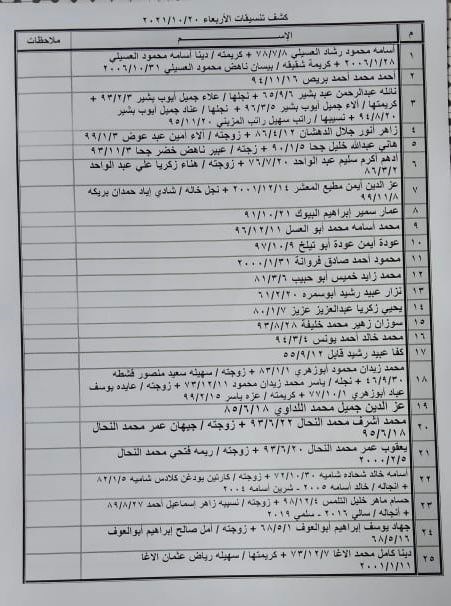 كشف تنسيقات الأربعاء ٢٠٢١/١٠/٢٠
م الإســـــم ملاحظات
١ أسامه محمود رشاد العسيلي ٧٨/٧/٨ + كريمته / دينا أسامه محمود العسيلي
٢٠٠٦/١/٢٨ + كريمة شقيقه / بيسان ناهض محمود العسيلي ٢٠٠٦/١٠/٣١
٢ أحمد محمد أحمد بريص ٩٤/١١/١٦
٣ نائله عبدالرحمن عيد بشير ٦٥/٩/٦ + نجلها / علاء جميل أيوب بشير ٩٣/٢/٣ +
كريمتها / آلاء جميل أيوب بشير ٩٦/٣/٥ + نجلها / عناد جميل أيوب بشير
٩٤/٨/٢٠ + نسيبها / راتب سهيل راتب المزيني ٩٥/١١/٢٠
٤ زاهر أنور جلال الدهشان ٨٦/٤/١٢ + زوجته / آلاء أمين عيد عوض ٩٩/١/٣
٥ هاني عبدالله خليل جحا ٩٠/١/٥ + زجته / عبير ناهض خضر جحا ٩٣/١١/٣
٦ أدهم أكرم سليم عبد الواحد ٧٦/٧/٢٠ + زوجته / هناء زكريا علي عبد الواحد
٨٦/٣/٢
٧ عز الدين أيمن مطيع المعشر ٢٠٠١/١٢/١٤ + نجل خاله / شادي إياد حمدان بريكه
٩٩/١١/٨
٨ عمار سمير إبراهيم البيوك ٩١/١٠/٢١
٩ محمد أسامه محمد أبو العسل ٩٦/١٢/١١
١٠ عودة أيمن عودة أبو تيلخ ٩٧/١٠/٩
١١ محمود أحمد صادق فروانة ٢٠٠٠/١/٣١
١٢ محمد زايد خميس أبو حبيب ٨١/٣/٦
١٣ نزار عبيد رشيد أبوسمره ٦١/٢/٢٠
١٤ يحيي زكريا عبدالعزيز عزيز ٨٠/١/٧
١٥ سوزان زهير محمد خليفة ٩٣/٨/٢٨
١٦ محمد خالد أحمد يونس ٩٤/٣/٤
١٧ كفا عبيد رشيد قابل ٥٥/٩/١٢
١٨ محمد زيدان محمود أبوزهري ٨٣/١/١ + زوجته / سهيله سعيد منصور قشطه
٤٦/٩/٣٠ + نجله / ياسر محمد زيدان محمود ٧٣/١٢/١١ + زوجته / عايده يوسف
عياد أبوزهري ٧٧/١٠/١ + كريمته / عزه ياسر ٩٩/٢/١٥
١٩ عز الدين جميل محمد اللداوي ٨٥/٦/١٨
٢٠ محمد أشرف محمد النحال ٩٣/٦/٢٢ + زوجته / جيهان عمر محمد النحال
٩٥/٦/١٨
٢١ يعقوب عمر محمد النحال ٩٣/٦/٢٠ + زوجته / ريمه فتحي محمد النحال
٢٠٠٠/٢/٥
٢٢ أسامه خالد شحاده شاميه ٧٢/١٠/٣٠ + زوجته / كارتين بودغن كلادس شاميه ٨٢/١/٥
+ انجاله / خالد أسامه ٢٠٠٥ - شرين أسامه ٢٠٠٤
٢٣ حسام ماهر خليل التلمس ٩٨/١٢/٤ + زوجته / نسيبه زاهر إسماعيل أحمد ٨٩/٨/٢٧
+ أنجاله / سالي ٢٠١٦ - سلمي ٢٠١٩
٢٤ جهاد يوسف إبراهيم أبوالعوف ٦٨/٥/١ + زوجته / أمل صالح إبراهيم أبوالعوف
٦٨/٥/١٦
٢٥ دينا كامل محمد الاغا ٧٣/١٢/٧ + كريمتها / سهيله رياض عثمان الاغا
٢٠٠١/١/١١